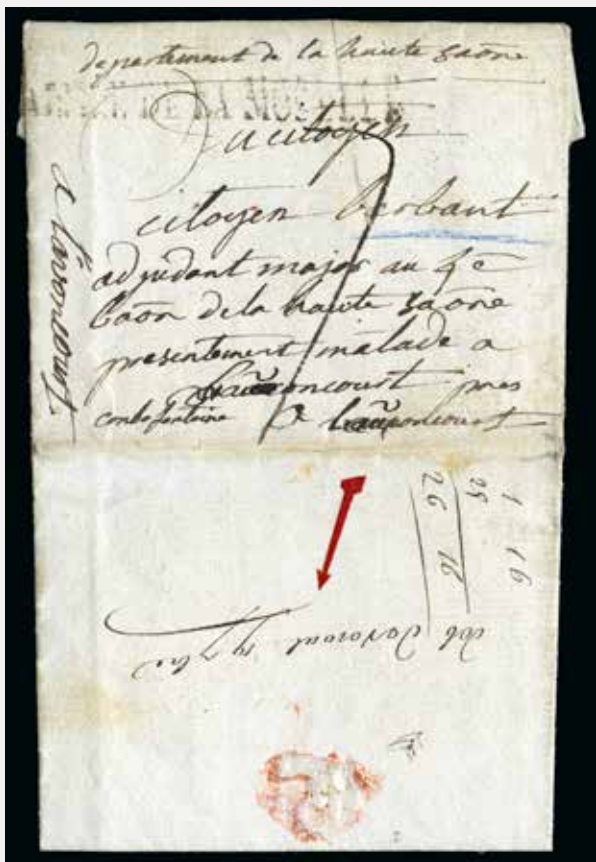 departement de la haute saone
ARMÉE DE LA MOSELLE
Au citoyen
citoyen berbant
adjudant major au 4e
baon de la haute saone
presentement malade a
lavoncourt pres
combefontaine a lavoncourt
a lavoncourt
1 16
25
26 16
deb